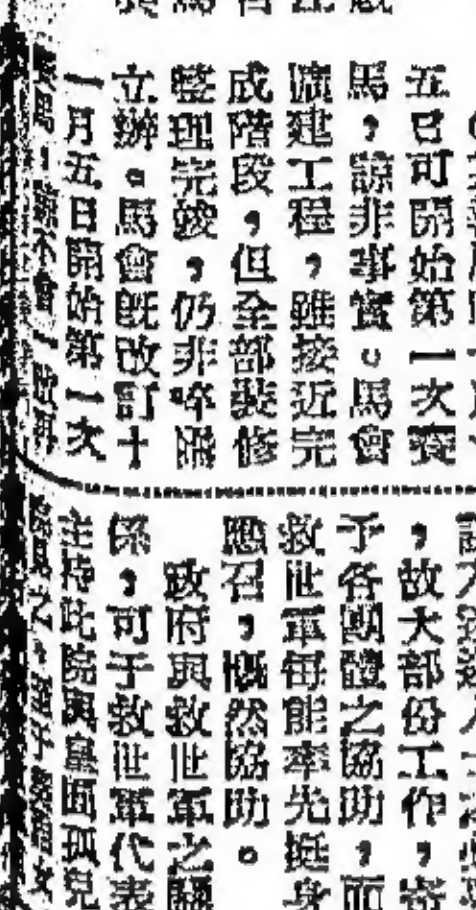 五日可開始第一次賽
馬，諒非事實。馬會
擴建工程，雖接近完
成階段，但全部裝修
整理完竣，仍非咄嗟
立辦。馬會旣改訂十
一月五日開始第一次
賽馬，諒不會一改再
，故大部份工作，寄
予各團體之協助，而
救世軍每能率先挺身
應召，慨然協助。
政府與救世軍之關
係，可于救世軍代表
主持此院與皇囿孤兒